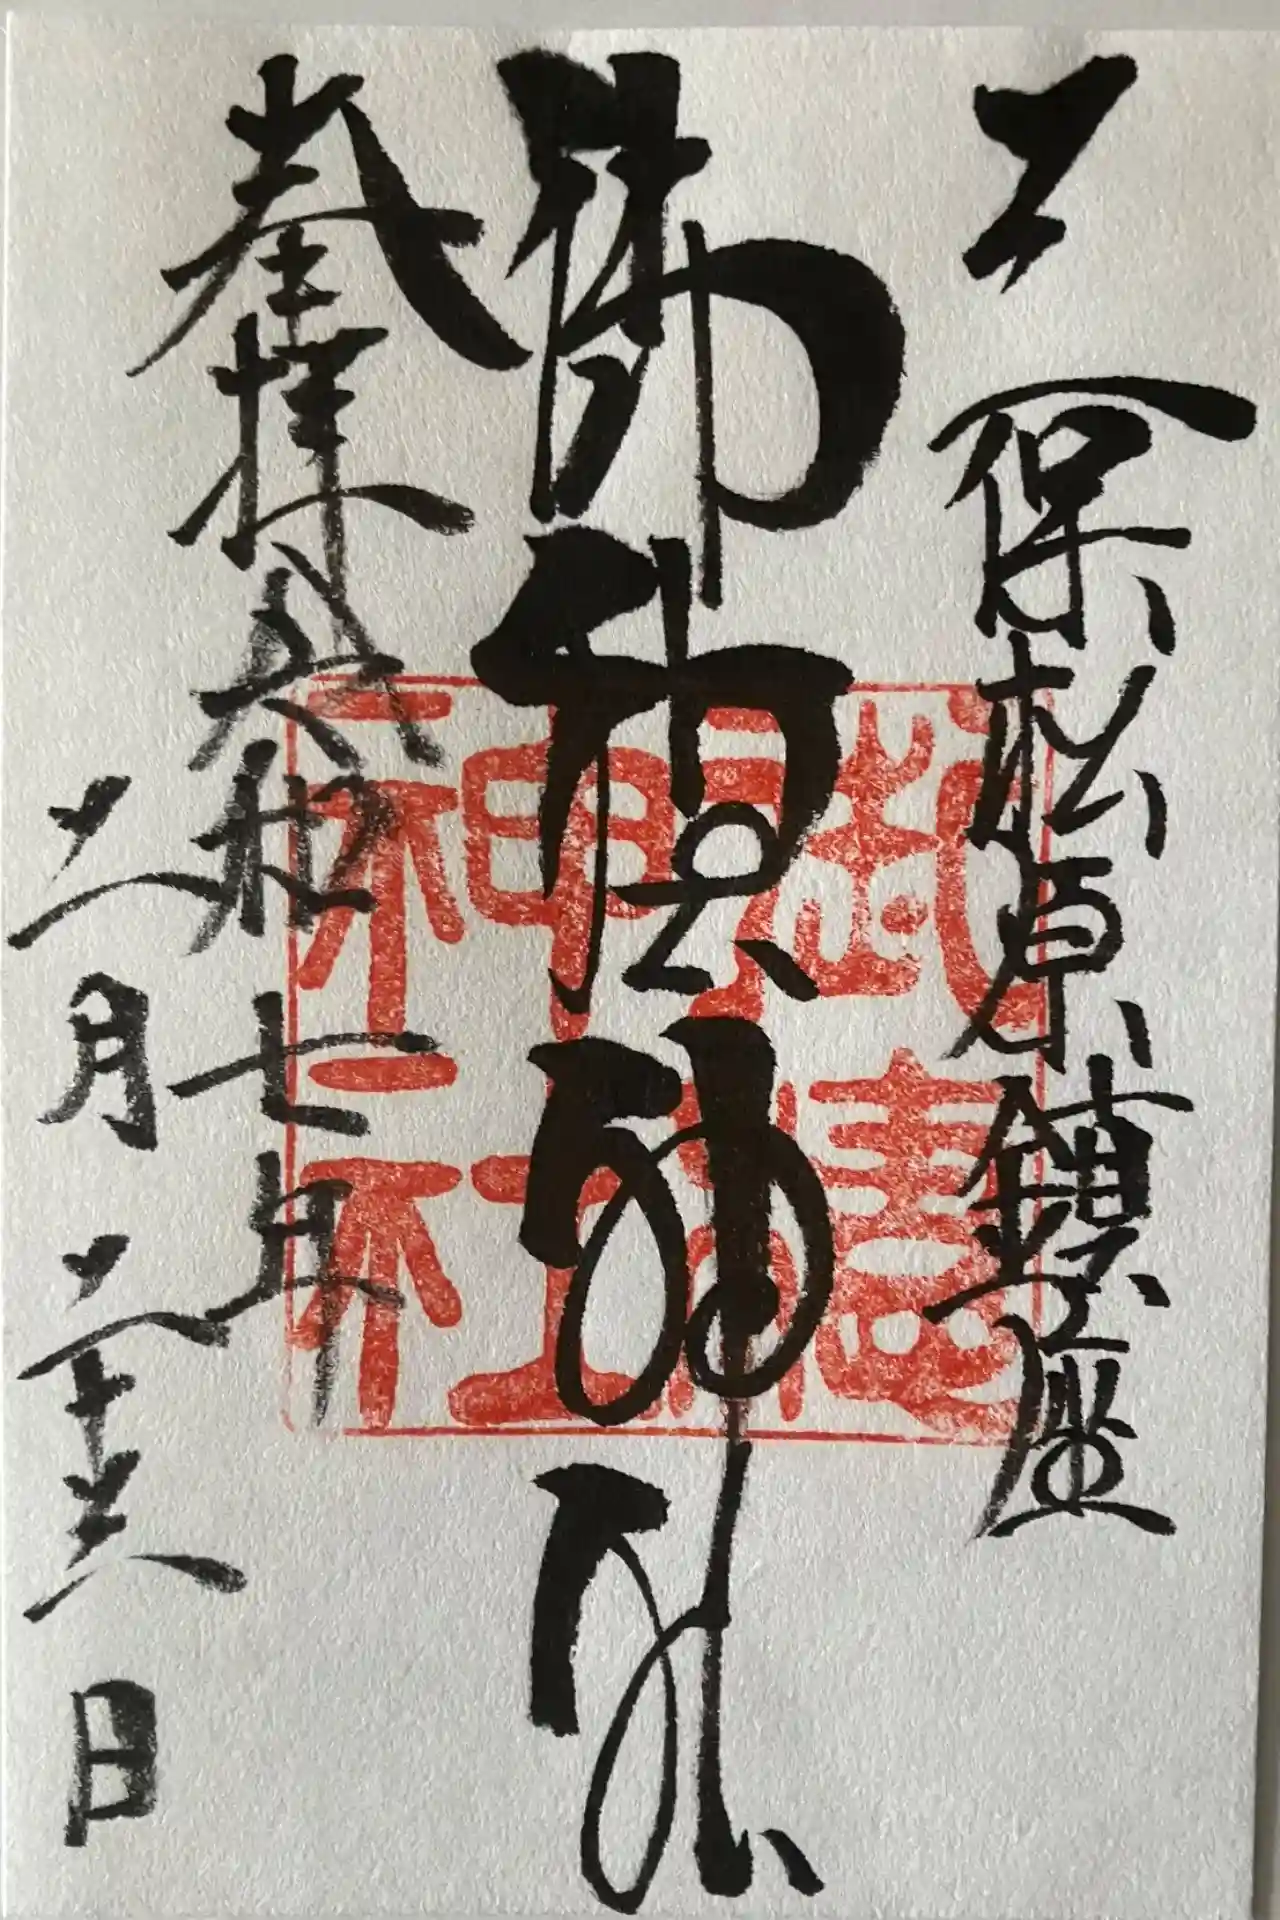 三保松原鎮座
御穂神社
奉拝 令和七年
二月二十六日
御穂
神社